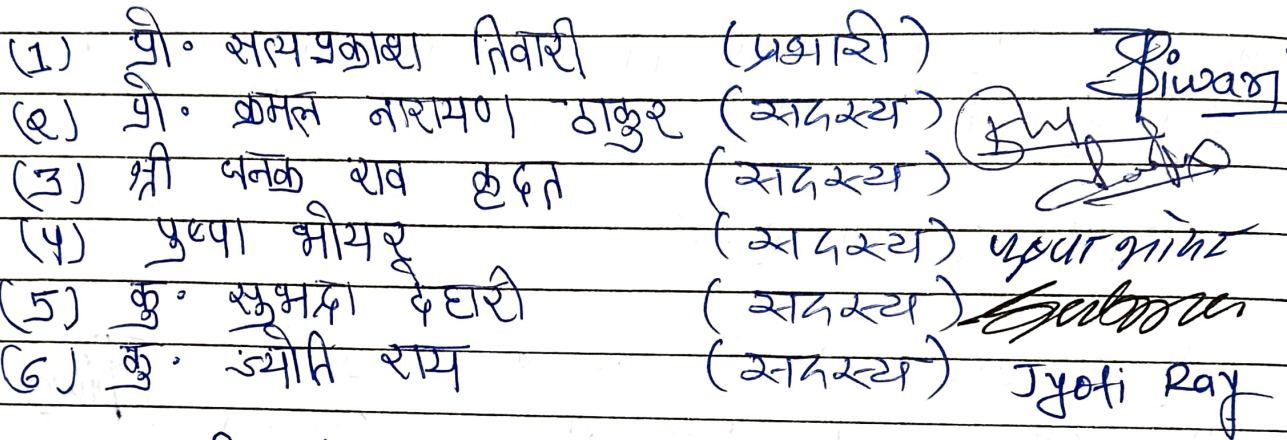 (1) प्रो. सत्यप्रकाश तिवारी (प्रभारी) Tiwari
(२) प्रो. कमल नारायण ठाकुर (सदस्य)
(3) श्री धनक राव (सदस्य)
(4) पुष्पा भोयर (सदस्य) पुष्पा भोयर
(5) कु. सुभद्रा देहारी (सदस्य)
(6) कु. ज्योति राय (सदस्य) Jyoti Ray